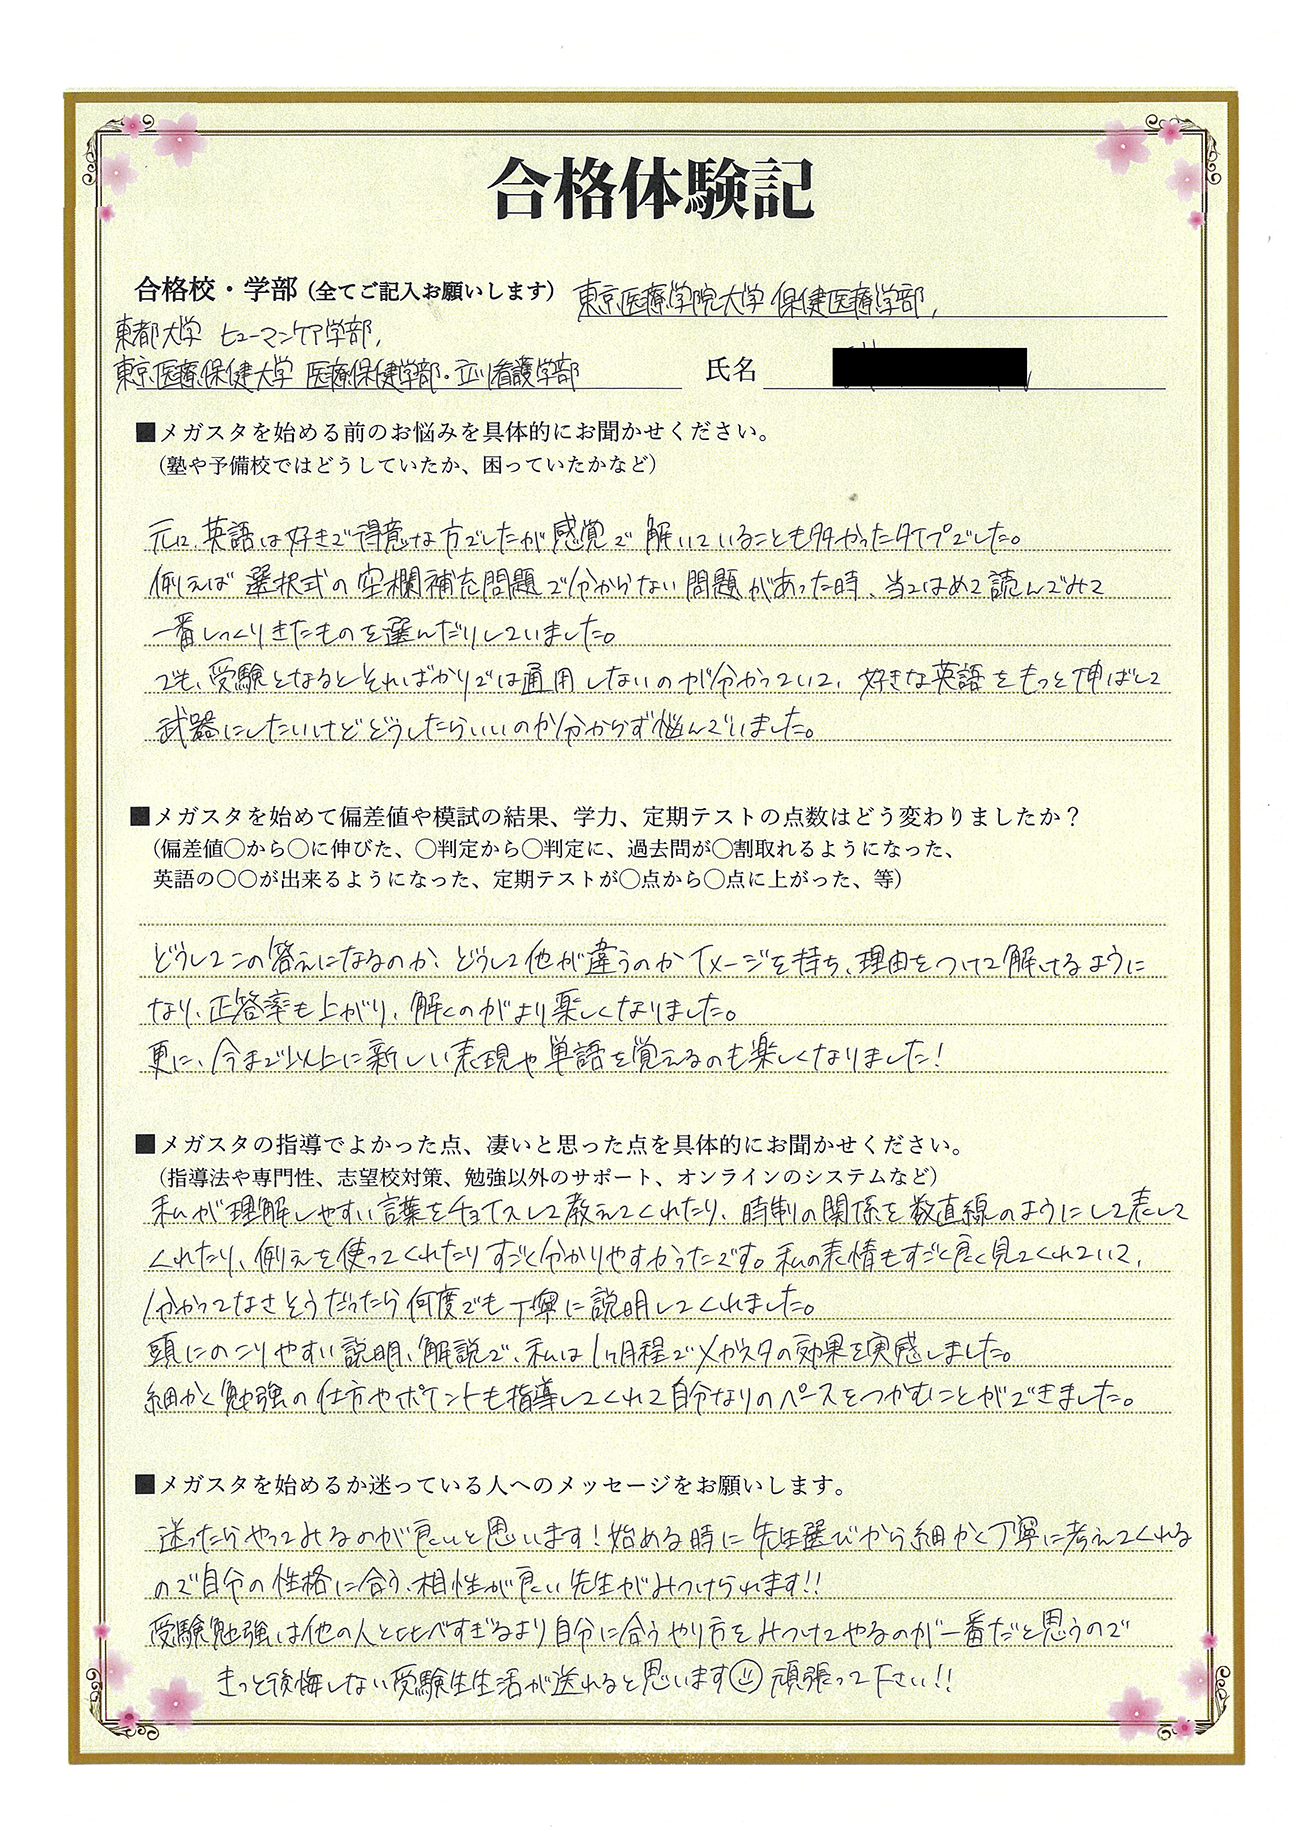 合格体験記
合格校・学部（全てご記入お願いします） 東京医療学院大学 保健医療学部,
東都大学 ヒューマンケア学部,
東京医療保健大学 医療保健学部・立川看護学部 氏名
■メガスタを始める前のお悩みを具体的にお聞かせください。
（塾や予備校ではどうしていたか、困っていたかなど）
元は、英語は好きで得意な方でしたが感覚で解いていることも多かったタイプでした。
例えば選択式の空欄補充問題で分からない問題があった時、当てはめて読んでみて
一番しっくりきたものを選んだりしていました。
でも、受験となるとそればかりでは通用しないのが分かっていて、好きな英語をもっと伸ばして
武器にしたいけどどうしたらいいのか分からず悩んでいました。
■メガスタを始めて偏差値や模試の結果、学力、定期テストの点数はどう変わりましたか？
（偏差値〇から〇に伸びた、〇判定から〇判定に、過去問が〇割取れるようになった、
英語の〇〇が出来るようになった、定期テストが〇点から〇点に上がった、等）
どうしてこの答えになるのか、どうして他が違うのかイメージを持ち、理由をつけて解けるように
なり、正答率も上がり、解くのがより楽しくなりました。
更に、今まで以上に新しい表現や単語を覚えるのも楽しくなりました！
■メガスタの指導でよかった点、凄いと思った点を具体的にお聞かせください。
（指導法や専門性、志望校対策、勉強以外のサポート、オンラインのシステムなど）
私が理解しやすい言葉をチョイスして教えてくれたり、時制の関係を数直線のようにして表して
くれたり、例えを使ってくれたりすごく分かりやすかったです。私の表情もすごく良く見てくれていて、
分かってなさそうだったら何度でも丁寧に説明してくれました。
頭にのこりやすい説明、解説で、私は1ヶ月程でメガスタの効果を実感しました。
細かく勉強の仕方やポイントも指導してくれて自分なりのペースをつかむことができました。
■メガスタを始めるか迷っている人へのメッセージをお願いします。
迷ったらやってみるのが良いと思います！始める時に先生選びから細かく丁寧に考えてくれる
ので自分の性格に合う、相性が良い先生がみつけられます!!
受験勉強は他の人と比べすぎるより自分に合うやり方をみつけてやるのが一番だと思うので
きっと後悔しない受験生生活が送れると思います 頑張って下さい!!